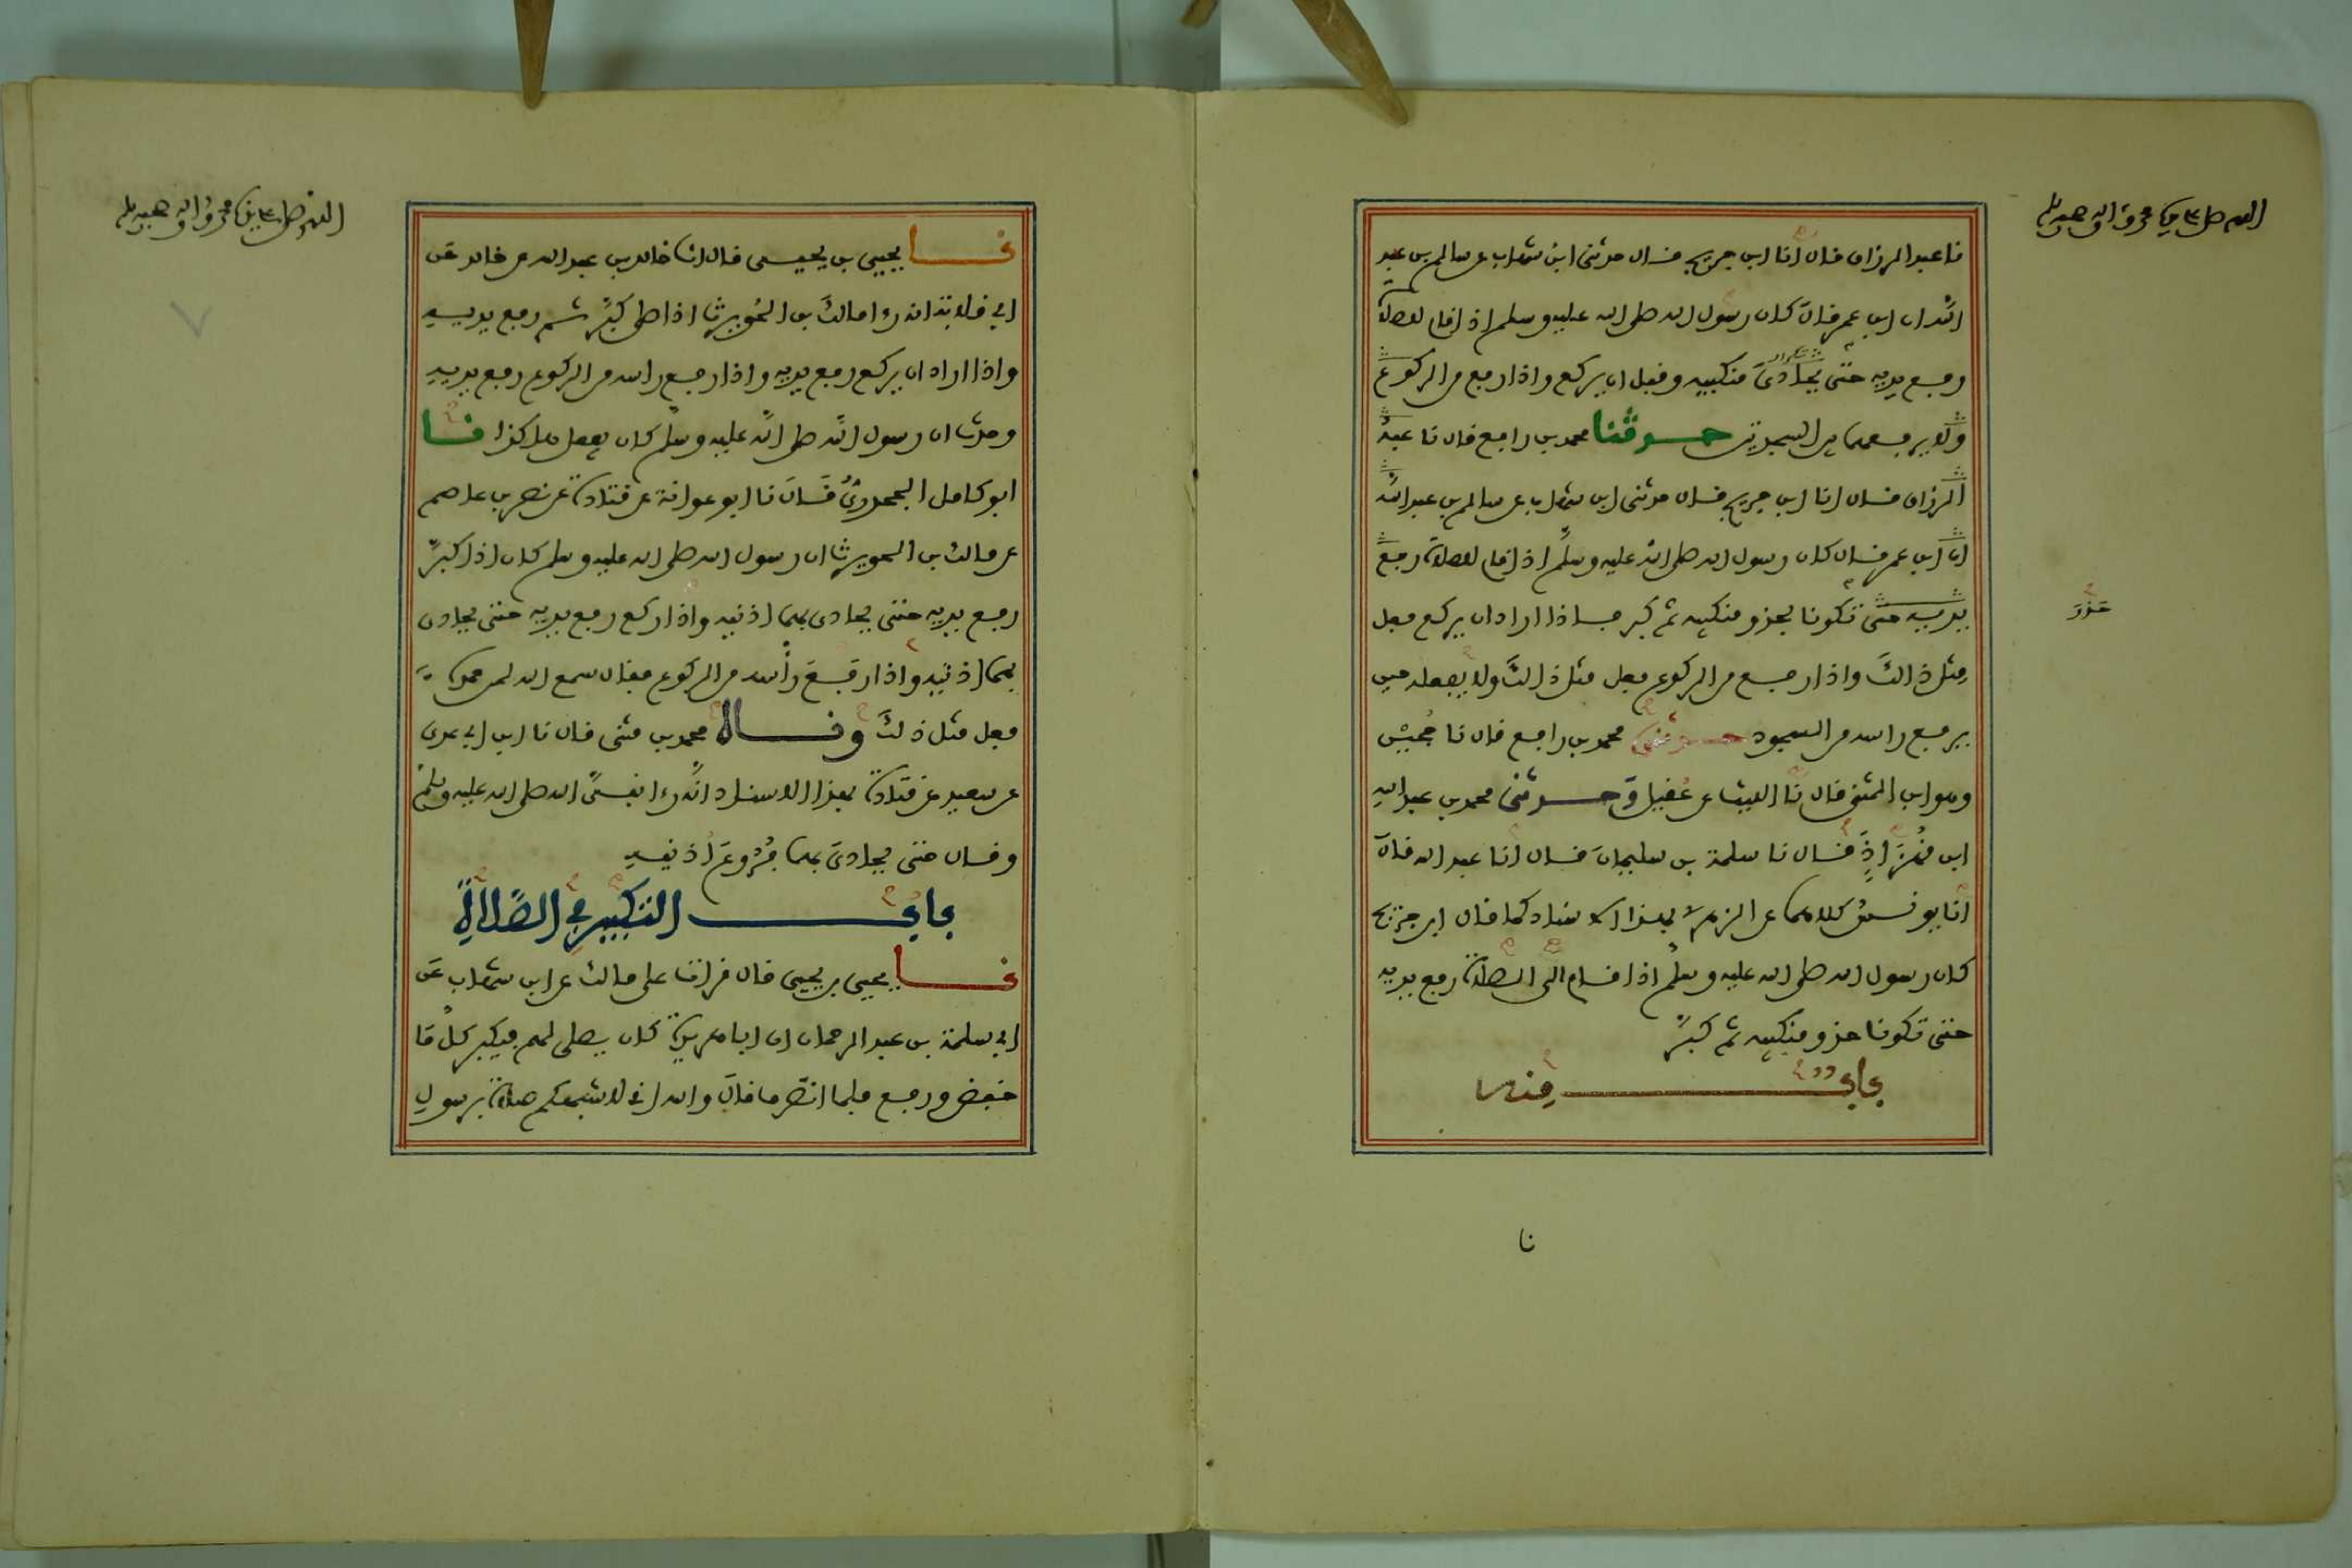 اللهم صل على سيدنا محمد وآله وصحبه وسلم
نا عبد الرزاق قال أنا ابن جريج قال حدثني ابن شهاب عن سالم بن عبد
الله ان ابن عمر قال كان رسول الله صلى الله عليه وسلم إذ اقام للصلاة
رفع يديه حتى يحاذى منكبيه وقبل ان يركع واذا رفع من الركوع
ولا يرفعهما بين السجدتين حدثنا محمد بن رافع قال نا عبد
الرزاق قال انا ابن جريج قال حدثني ابن شهاب عن سالم بن عبد الله
ان ابن عمر قال كان رسول الله صلى الله عليه وسلم اذ اقام للصلاة رفع
يديه حتى تكونا بحذو منكبيه ثم كبر فاذا اراد ان يركع فعل
مثل ذالك واذا رفع من الركوع فعل مثل ذالك ولا يفعله حين
يرفع راسه من السجود حدثني محمد بن رافع قال نا حُجين
وهو ابن المثنى قال نا الليث عن عُقيل وحدثني محمد بن عبد الله
ابن قُهزاذ قال نا سلمة بن سليمان قال انا عبد الله قال
انا يونس كلاهما عن الزهري بهذا الاسناد كما قال ابن جريج
كان رسول الله صلى الله عليه وسلم اذا قام الى الصلاة رفع يديه
حتى تكونا حذو منكبيه ثم كبر
باب منه
نا
اللهم صل على سيدنا محمد وآله وصحبه وسلم
نا يحيى بن يحيى قال انا خالد بن عبد الله عن خالد عن
ابي قلابة انه رءا مالك بن الحُويرث اذا صلى كبر ثم رفع يديه
واذا اراد ان يركع رفع يديه واذا رفع راسه من الركوع رفع يديه
وحدث ان رسول الله صلى الله عليه وسلم كان يفعل هاكذا نا
ابو كامل الجحدري قال نا ابو عوانة عن قتادة عن نصر بن عاصم
عن مالك بن الحويرث ان رسول الله صلى الله عليه وسلم كان اذا كبر
رفع يديه حتى يحاذى بهما اذنيه واذا ركع رفع يديه حتى يحاذى
بهما اذنيه واذا رفع رأسه من الركوع فقال سمع الله لمن حمده
فعل مثل ذلك وقال محمد بن مثنى قال نا ابن ابي عدى
عن سعيد عن قتادة بهذا الاسناد انه رءا نبي الله صلى الله عليه وسلم
وقال حتى يحاذى بهما فروع اذنيه
باب التكبير في الصلاة
نا يحيى بن يحيى قال قرات على مالك عن ابن شهاب عن
ابي سلمة بن عبد الرحمان ان ابا هريرة كان يصلى لهم فيكبر كلما
خفض ورفع فلما انصرف قال والله اني لاشبهكم صلاة برسول